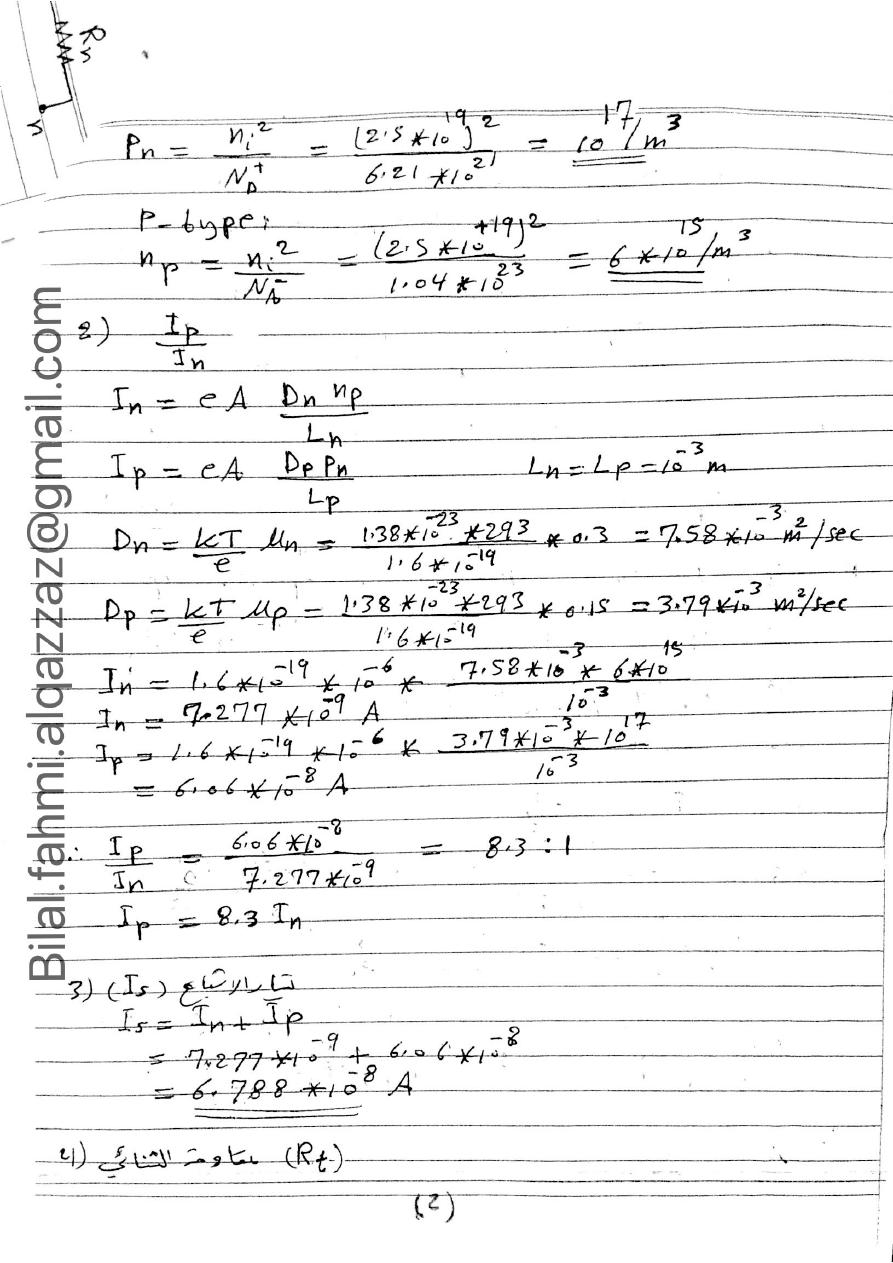 Rs
n
Pn = ni² / ND⁺ = (2.5 * 10¹⁹)² / 6.21 * 10²¹ = 10¹⁷/m³
P-type:
np = ni² / NA⁻ = (2.5 * 10⁺¹⁹)² / 1.04 * 10²³ = 6 * 10¹⁵/m³
2) Ip / In
In = eA Dn np / Ln
Ip = eA Dp Pn / Lp    Ln = Lp = 10⁻³ m
Dn = kT/e μn = 1.38*10⁻²³ * 293 / 1.6 * 10⁻¹⁹ * 0.3 = 7.58 * 10⁻³ m²/sec
Dp = kT/e μp = 1.38 * 10⁻²³ * 293 / 1.6 * 10⁻¹⁹ * 0.15 = 3.79 * 10⁻³ m²/sec
In = 1.6 * 10⁻¹⁹ * 10⁻⁶ * 7.58 * 10⁻³ * 6 * 10¹⁵ / 10⁻³
In = 7.277 * 10⁻⁹ A
Ip = 1.6 * 10⁻¹⁹ * 10⁻⁶ * 3.79 * 10⁻³ * 10¹⁷ / 10⁻³
= 6.06 * 10⁻⁸ A
∴ Ip / In = 6.06 * 10⁻⁸ / 7.277 * 10⁻⁹ = 8.3 : 1
Ip = 8.3 In
3) (Is) تيار الاشباع
Is = In + Ip
= 7.277 * 10⁻⁹ + 6.06 * 10⁻⁸
= 6.788 * 10⁻⁸ A
4) مقاومة الثنائي (Rt)
(2)
Bilal.fahmi.alqazzaz@gmail.com